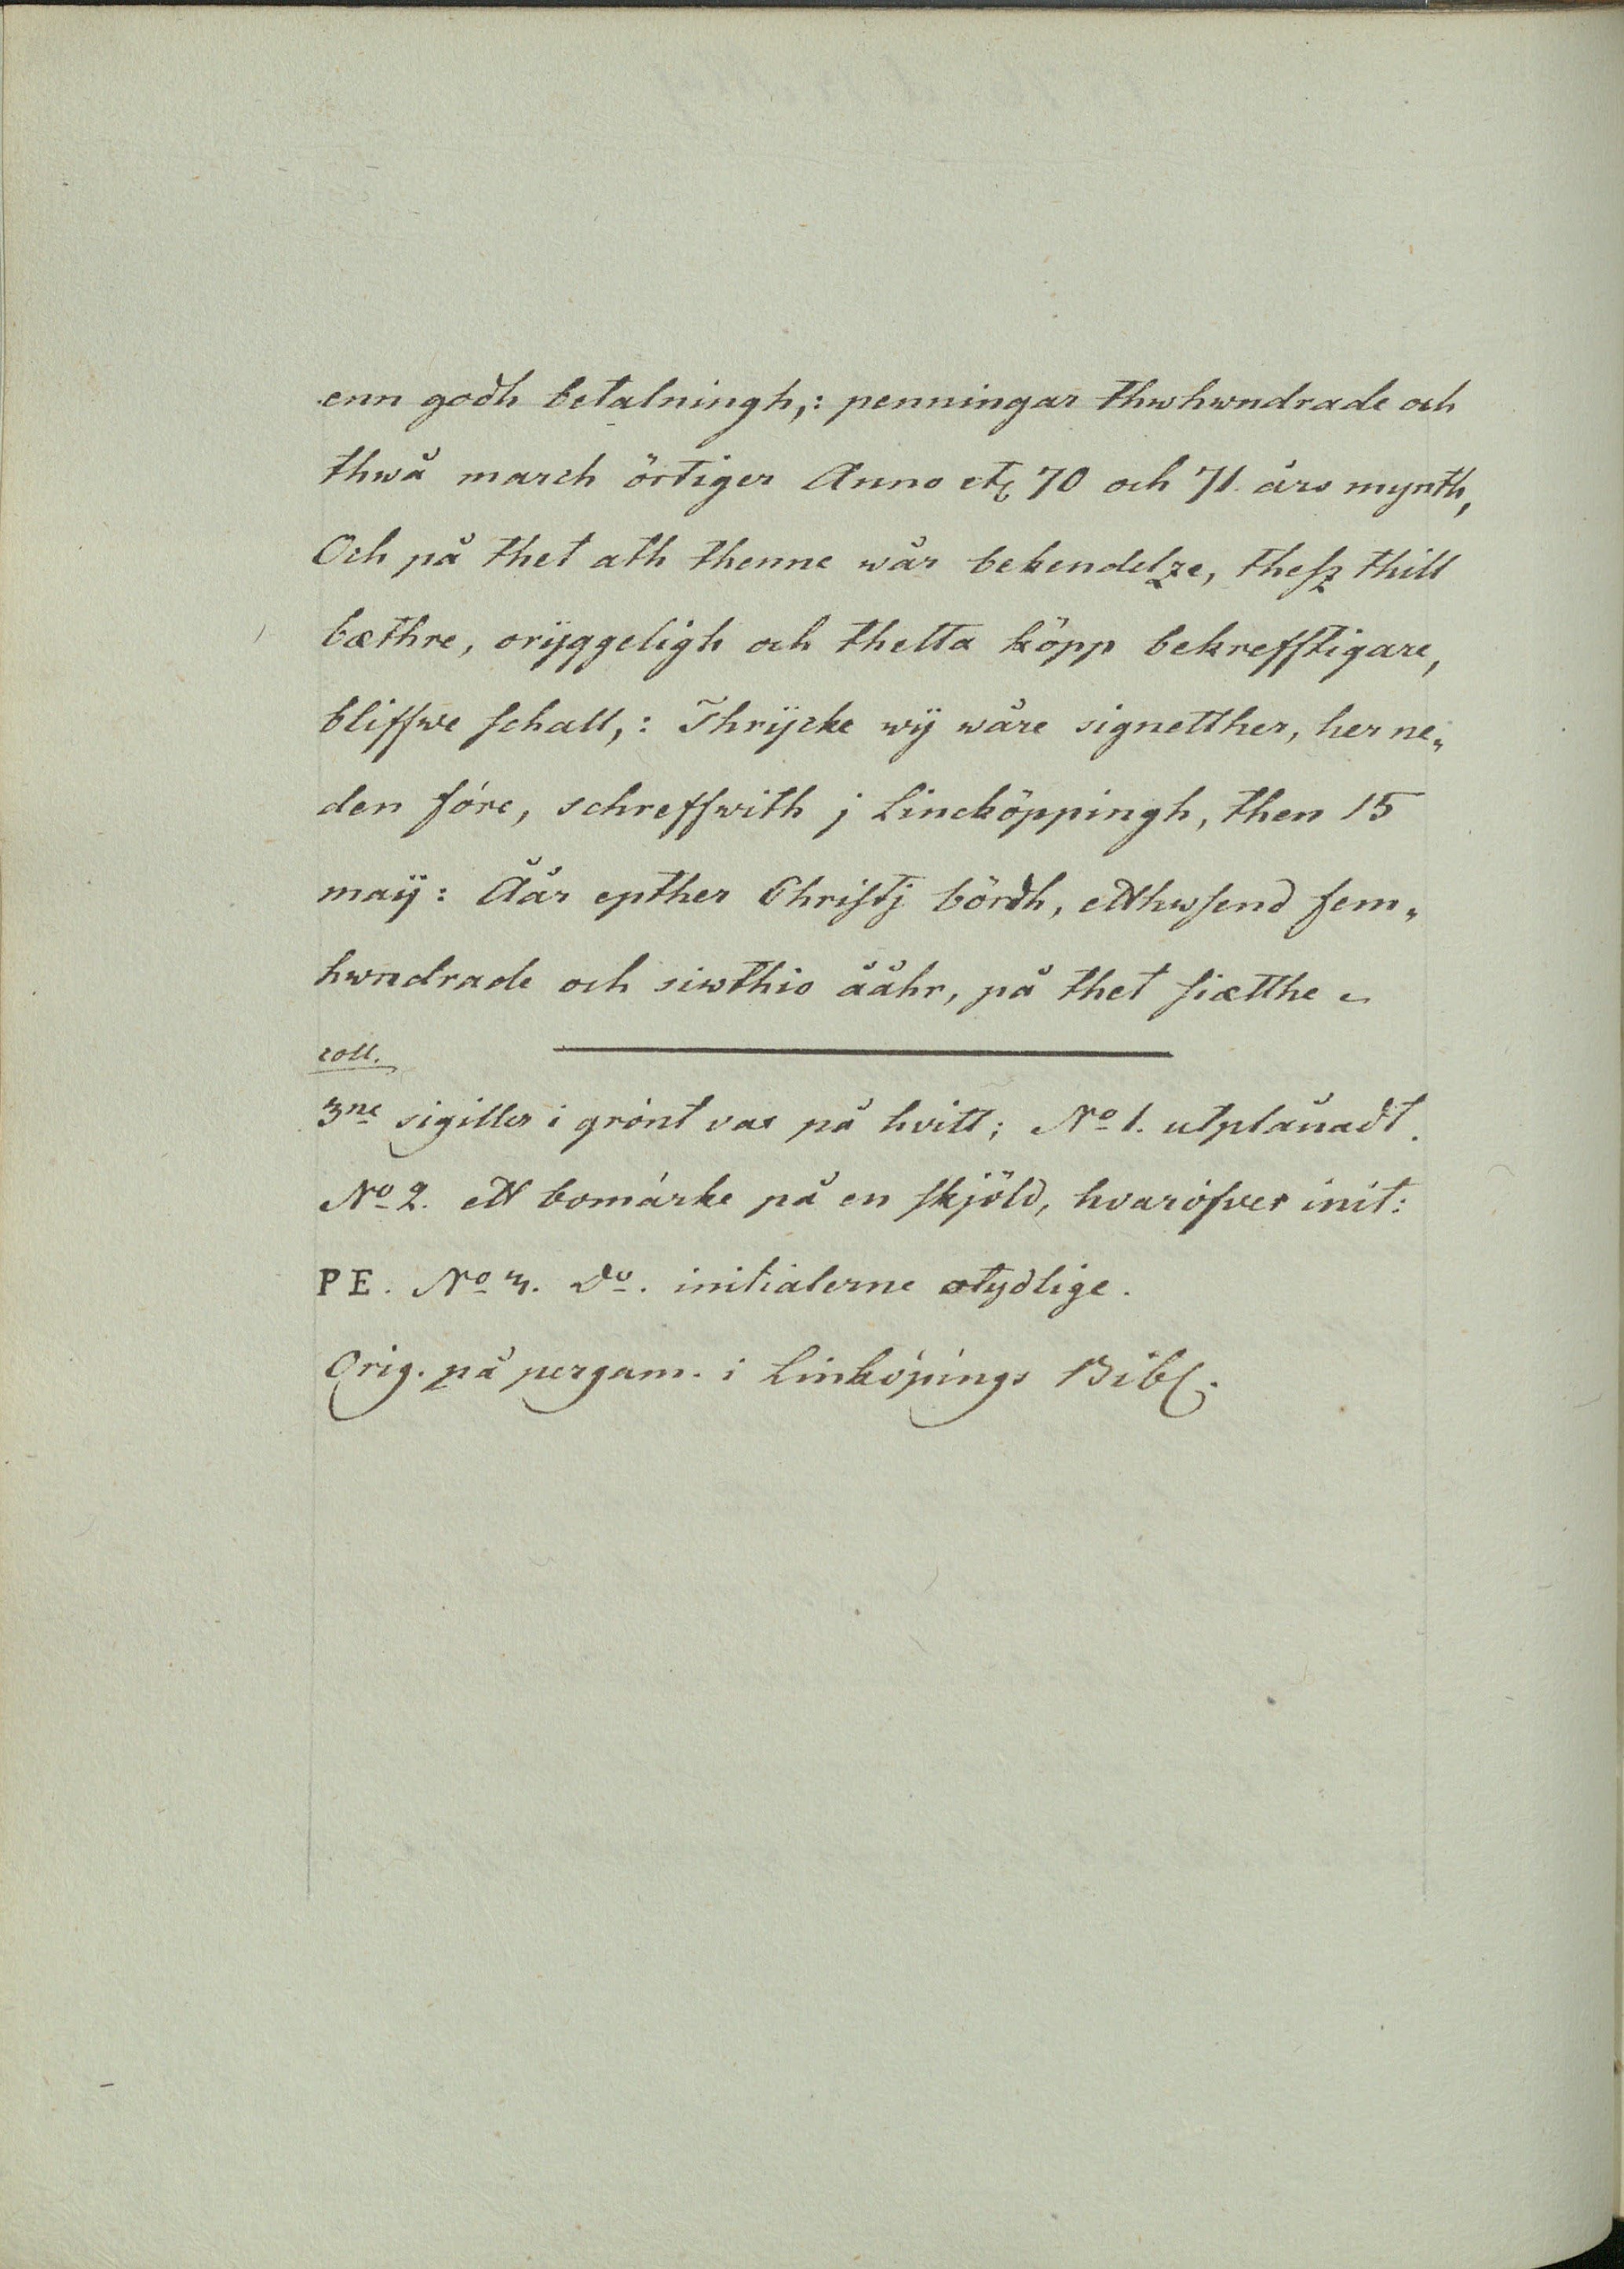 enn godh betalningh,: penningar thwhwndrade och
thwå march örtiger Anno etc 70 och 71 års mynth,
Och på thet ath thenne wår bekendelze, thesz thill
bæthre, orÿggeligh och thetta köpp bekrefftigare,
bliffwe schall,: Thrÿcke wÿ wåre signetther, her ne„
den före, schreffwith j Linchöppingh, then 15
maÿ: Åår epther Christj bördh, etthwsend fem„
hwndrade och siwthio ååhr, på thet siætthe
coll.
3ne sigiller i grönt vax på hvitt; No 1. utplånadt.
No 2. ett bomärke på en skjöld, hvaröfver init:
PE. No 3. Do. initialerne otydlige.
Orig. på pergam. i Linköpings Bibl.